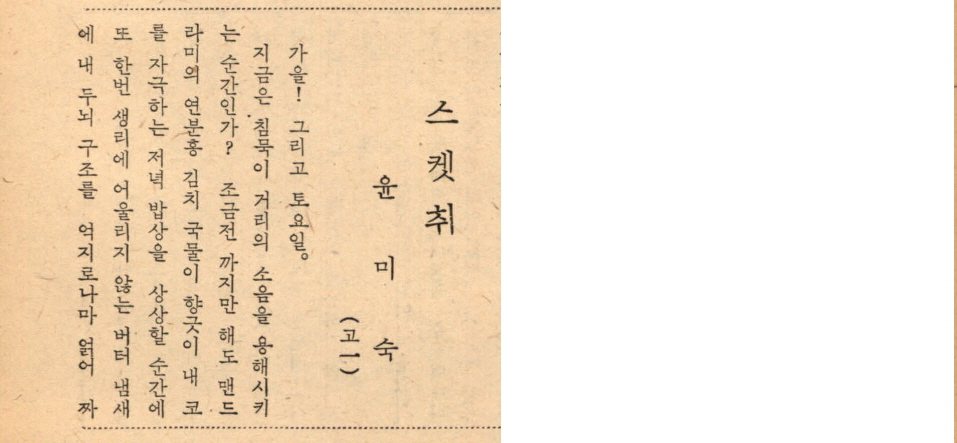 스켓취
윤미숙
(고一)
가을! 그리고 토요일。
지금은 침묵이 거리의 소음을 용해시키
는 순간인가? 조금전 까지만 해도 맨드
라미의 연분홍 김치 국물이 향긋이 내 코
를 자극하는 저녁 밥상을 상상할 순간에
또 한번 생리에 어울리지 않는 버터 냄새
에 내 두뇌 구조를 억지로나마 얽어 짜